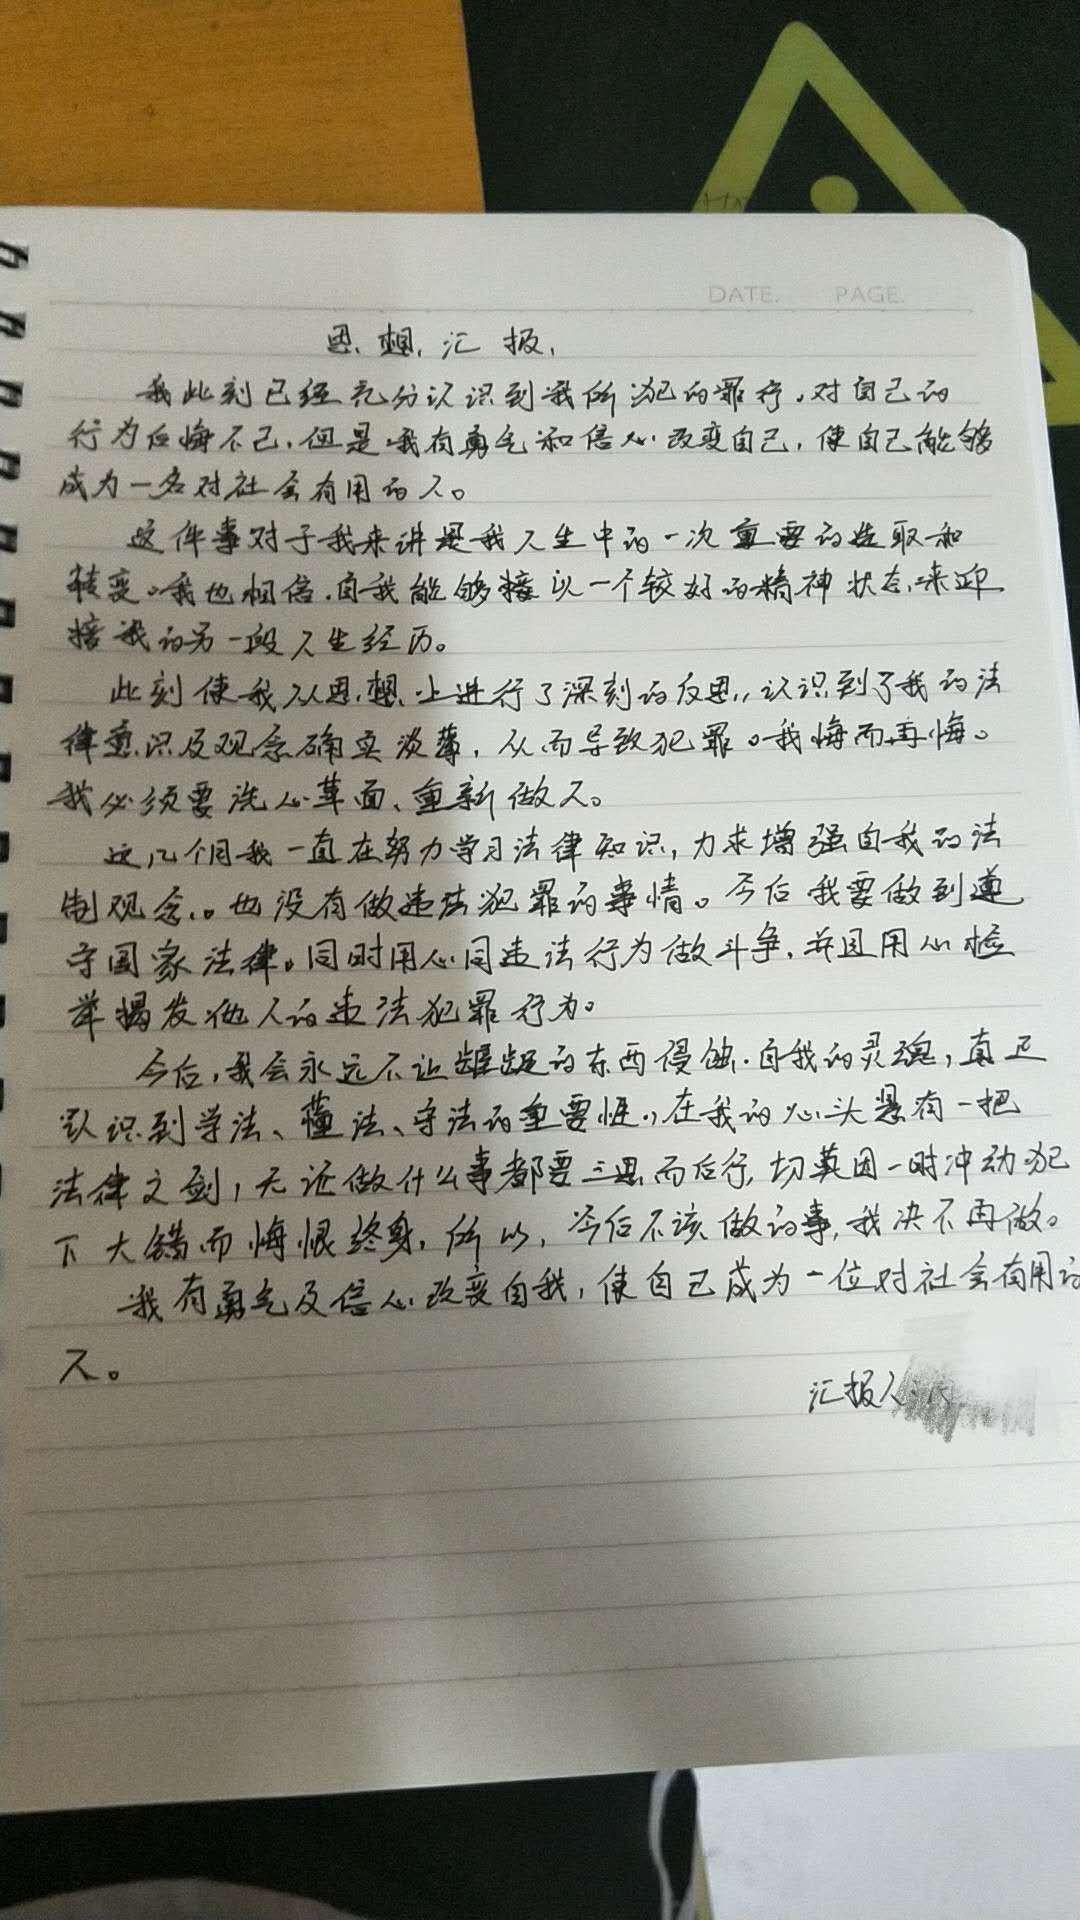 DATE. PAGE.
思想汇报
我此刻已经充分认识到我所犯的罪行。对自己的
行为后悔不已,但是我有勇气和信心改变自己,使自己能够
成为一名对社会有用的人。
这件事对于我来讲是我人生中的一次重要的选取和
转变。我也相信,自我能够接以一个较好的精神状态,来迎
接我的另一段人生经历。
此刻使我从思想上进行了深刻的反思,认识到了我的法
律意识及观念确实淡薄,从而导致犯罪。我悔而再悔。
我必须要洗心革面、重新做人。
这几个月我一直在努力学习法律知识,力求增强自我的法
制观念。也没有做违法犯罪的事情。今后我要做到遵
守国家法律。同时用心同违法行为做斗争,并且用心检
举揭发他人的违法犯罪行为。
今后,我会永远不让龌龊的东西侵蚀自我的灵魂,真正
认识到学法、懂法、守法的重要性,在我的心头悬有一把
法律之剑,无论做什么事都要三思而后行,切莫因一时冲动犯
下大错而悔恨终身,所以,今后不该做的事,我决不再做。
我有勇气及信心改变自我,使自己成为一位对社会有用的
人。
汇报人: